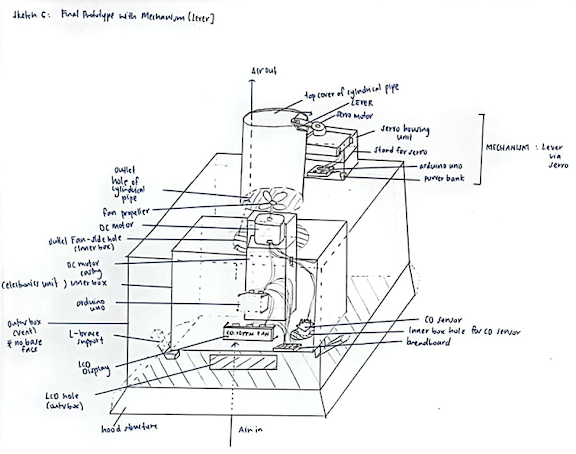 Sketch 6: Final Prototype with Mechanism [Lever]
Air out
top cover of cylindrical pipe
LEVER
servo motor
servo housing
unit
stand for servo
arduino uno
power bank
MECHANISM: Lever
via
servo
outlet
hole of
cylindrical
pipe
fan propeller
DC motor
outlet Fan-side hole
(inner box)
DC motor
casing
(electronics unit) Inner box
arduino
uno
outer box
(vent)
& no base
face
L-brace
support
LCD
Display
LCD hole
(outer box)
hood structure
Air in
CO sensor
Inner box hole for CO sensor
breadboard
FAN